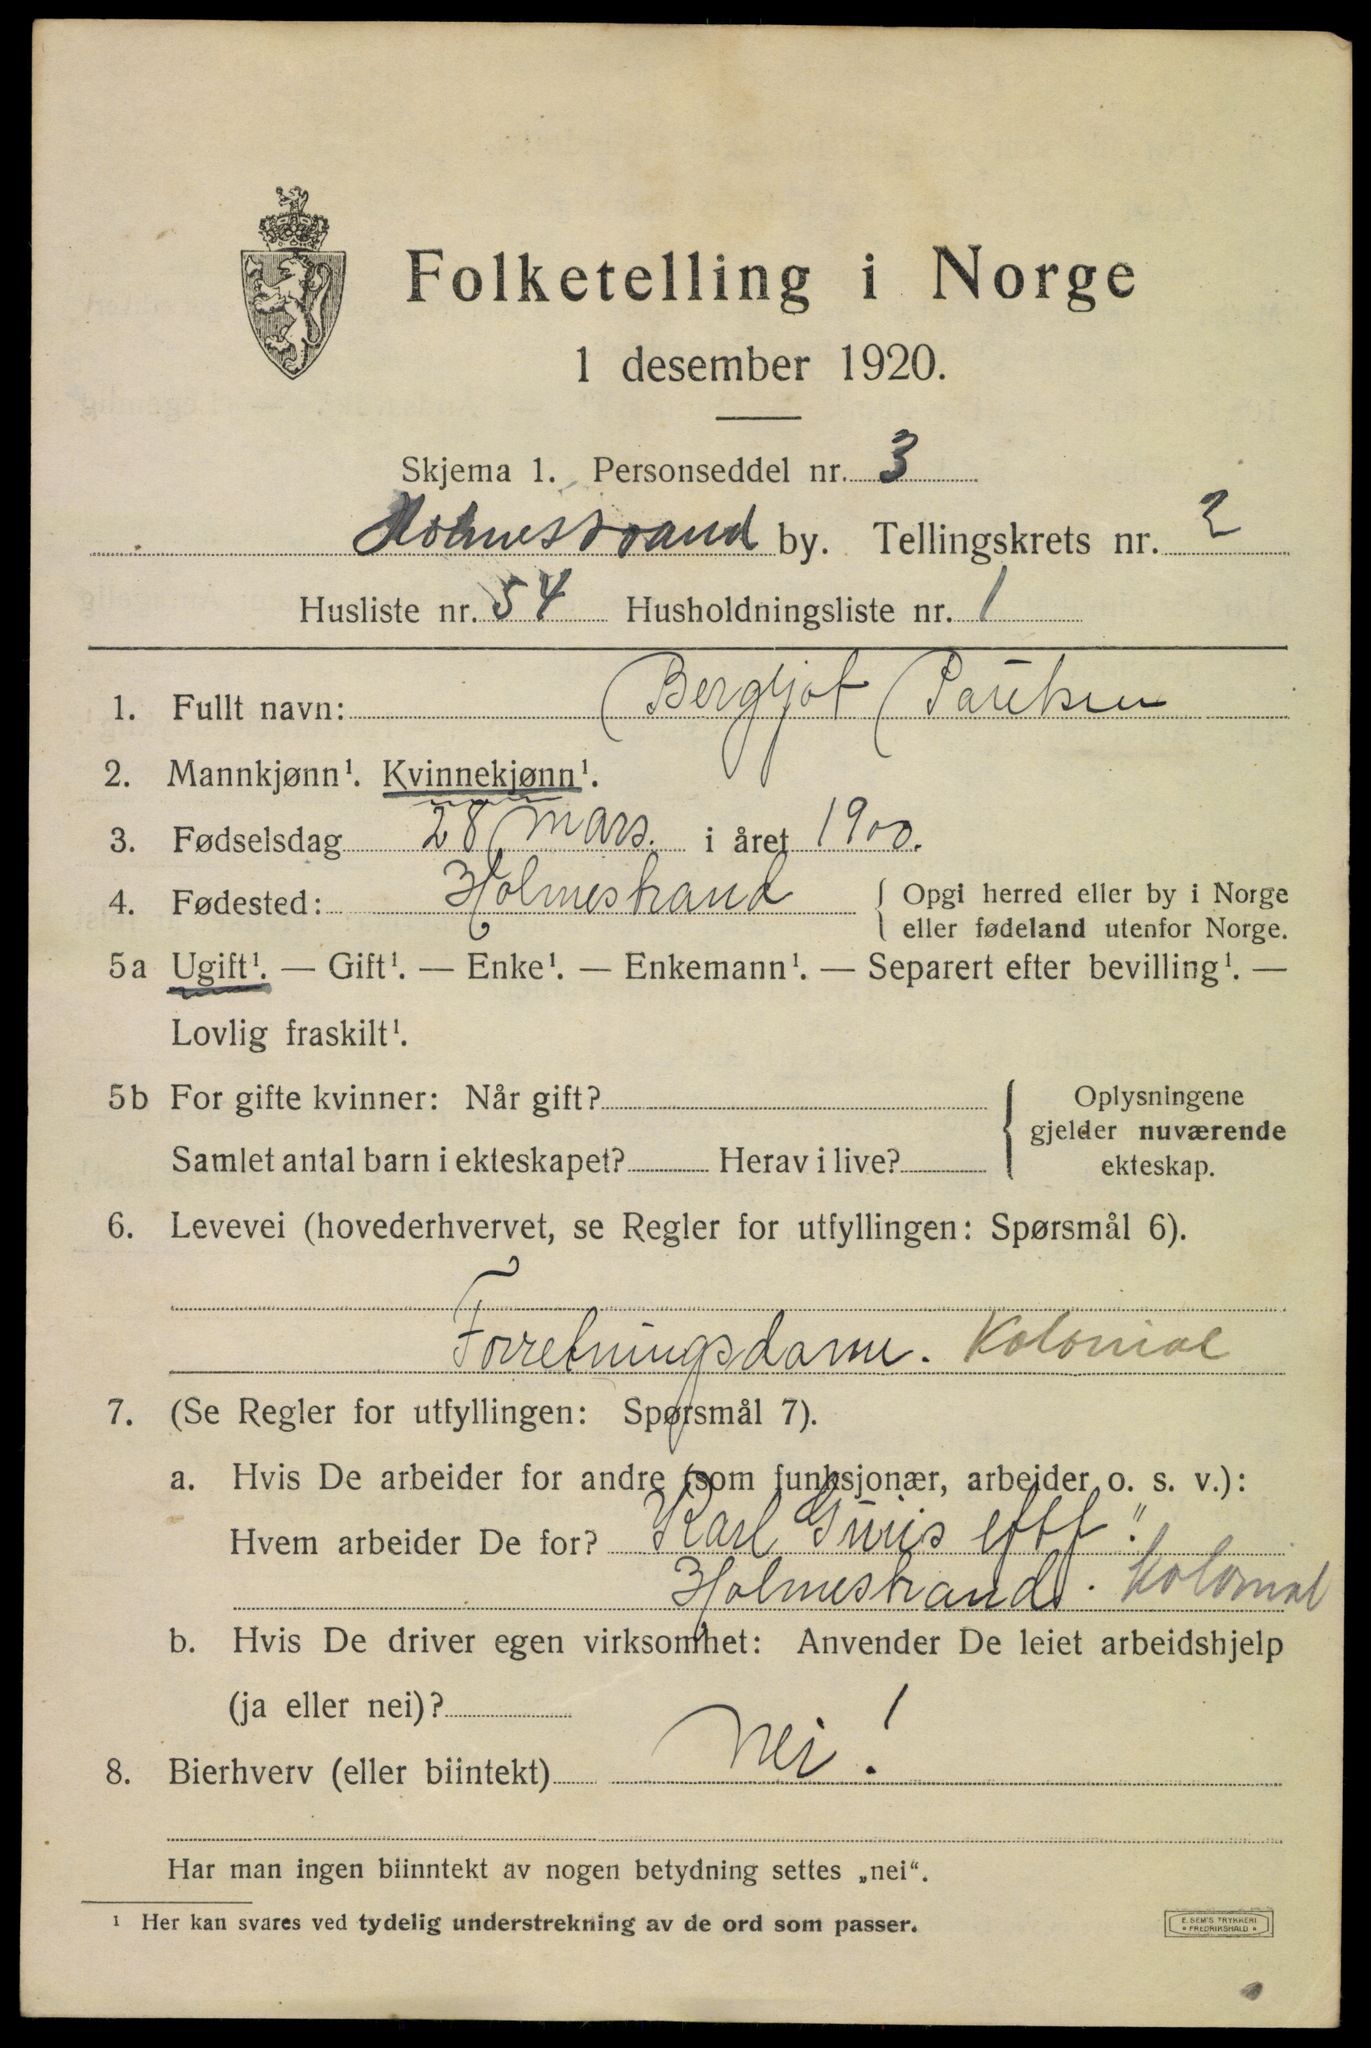 Folketelling i Norge
1 desember 1920.
Skjema 1. Personseddel nr. 3
Holmestrand by. Tellingskrets nr. 2
Husliste nr. 54 Husholdningsliste nr. 1
1. Fullt navn: Bergljot
2. Mannkjønn¹. Kvinnekjønn¹.
3. Fødselsdag 28 mars. i året 1900.
4. Fødested: Holmestrand { Opgi herred eller by i Norge
eller fødeland utenfor Norge.
5a Ugift¹. — Gift¹. — Enke¹. — Enkemann¹. — Separert efter bevilling¹. —
Lovlig fraskilt¹.
5b For gifte kvinner: Når gift? { Oplysningene
gjelder nuværende
Samlet antal barn i ekteskapet? Herav i live? ekteskap.
6. Levevei (hovederhvervet, se Regler for utfyllingen: Spørsmål 6).
Forretningsdame. Kolonial
7. (Se Regler for utfyllingen: Spørsmål 7).
a. Hvis De arbeider for andre (som funksjonær, arbeider o. s. v.):
Hvem arbeider De for? Karl eftf".
Holmestrand. Kolonial
b. Hvis De driver egen virksomhet: Anvender De leiet arbeidshjelp
(ja eller nei)?
8. Bierhverv (eller biintekt) Nei!
Har man ingen biinntekt av nogen betydning settes „nei“.
¹ Her kan svares ved tydelig understrekning av de ord som passer.
E. SEM'S TRYKKERI
• FREDRIKSHALD •